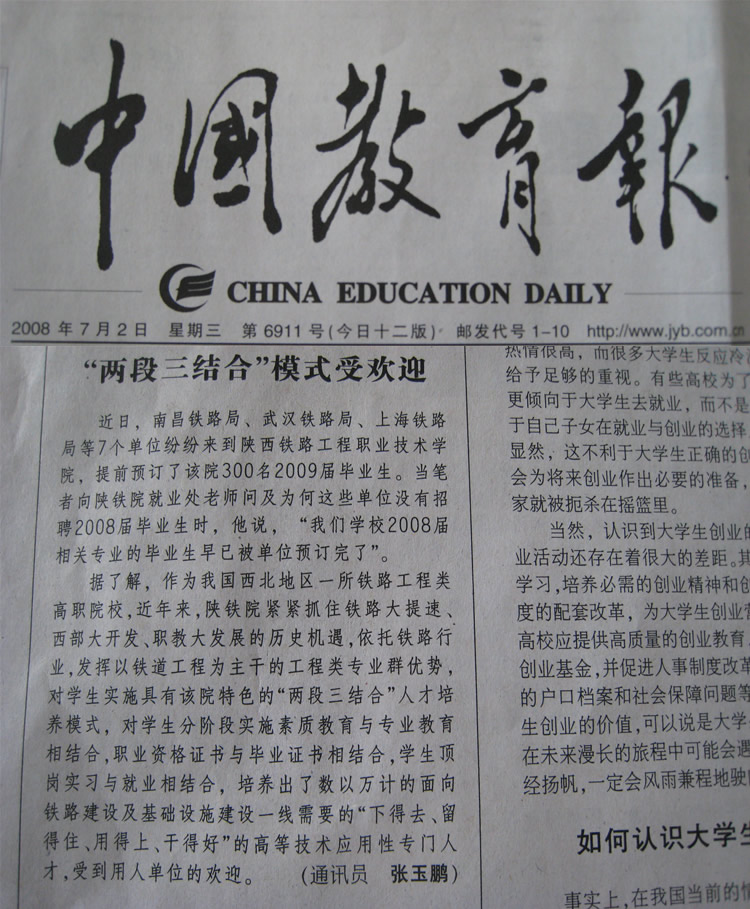 中國教育報
CHINA EDUCATION DAILY
2008年7月2日 星期三 第6911号(今日十二版) 邮发代号1-10 http://www.jyb.com.cn
“两段三结合”模式受欢迎
近日，南昌铁路局、武汉铁路局、上海铁路
局等7个单位纷纷来到陕西铁路工程职业技术学
院，提前预订了该院300名2009届毕业生。当笔
者向陕铁院就业处老师问及为何这些单位没有招
聘2008届毕业生时，他说，“我们学校2008届
相关专业的毕业生早已被单位预订完了”。
据了解，作为我国西北地区一所铁路工程类
高职院校，近年来，陕铁院紧紧抓住铁路大提速、
西部大开发、职教大发展的历史机遇，依托铁路行
业，发挥以铁道工程为主干的工程类专业群优势，
对学生实施具有该院特色的“两段三结合”人才培
养模式，对学生分阶段实施素质教育与专业教育
相结合，职业资格证书与毕业证书相结合，学生顶
岗实习与就业相结合，培养出了数以万计的面向
铁路建设及基础设施建设一线需要的“下得去、留
得住、用得上、干得好”的高等技术应用性专门人
才，受到用人单位的欢迎。 (通讯员 张玉鹏)
热情很高，而很多大学生反应冷
给予足够的重视。有些高校为了
更倾向于大学生去就业，而不是
于自己子女在就业与创业的选择
显然，这不利于大学生正确的创
会为将来创业作出必要的准备，
家就被扼杀在摇篮里。
当然，认识到大学生创业的
业活动还存在着很大的差距。其
学习，培养必需的创业精神和创
度的配套改革，为大学生创业营
高校应提供高质量的创业教育
创业基金，并促进人事制度改革
的户口档案和社会保障问题等
生创业的价值，可以说是大学
在未来漫长的旅程中可能会遇
经扬帆，一定会风雨兼程地驶
如何认识大学生
事实上，在我国当前的情